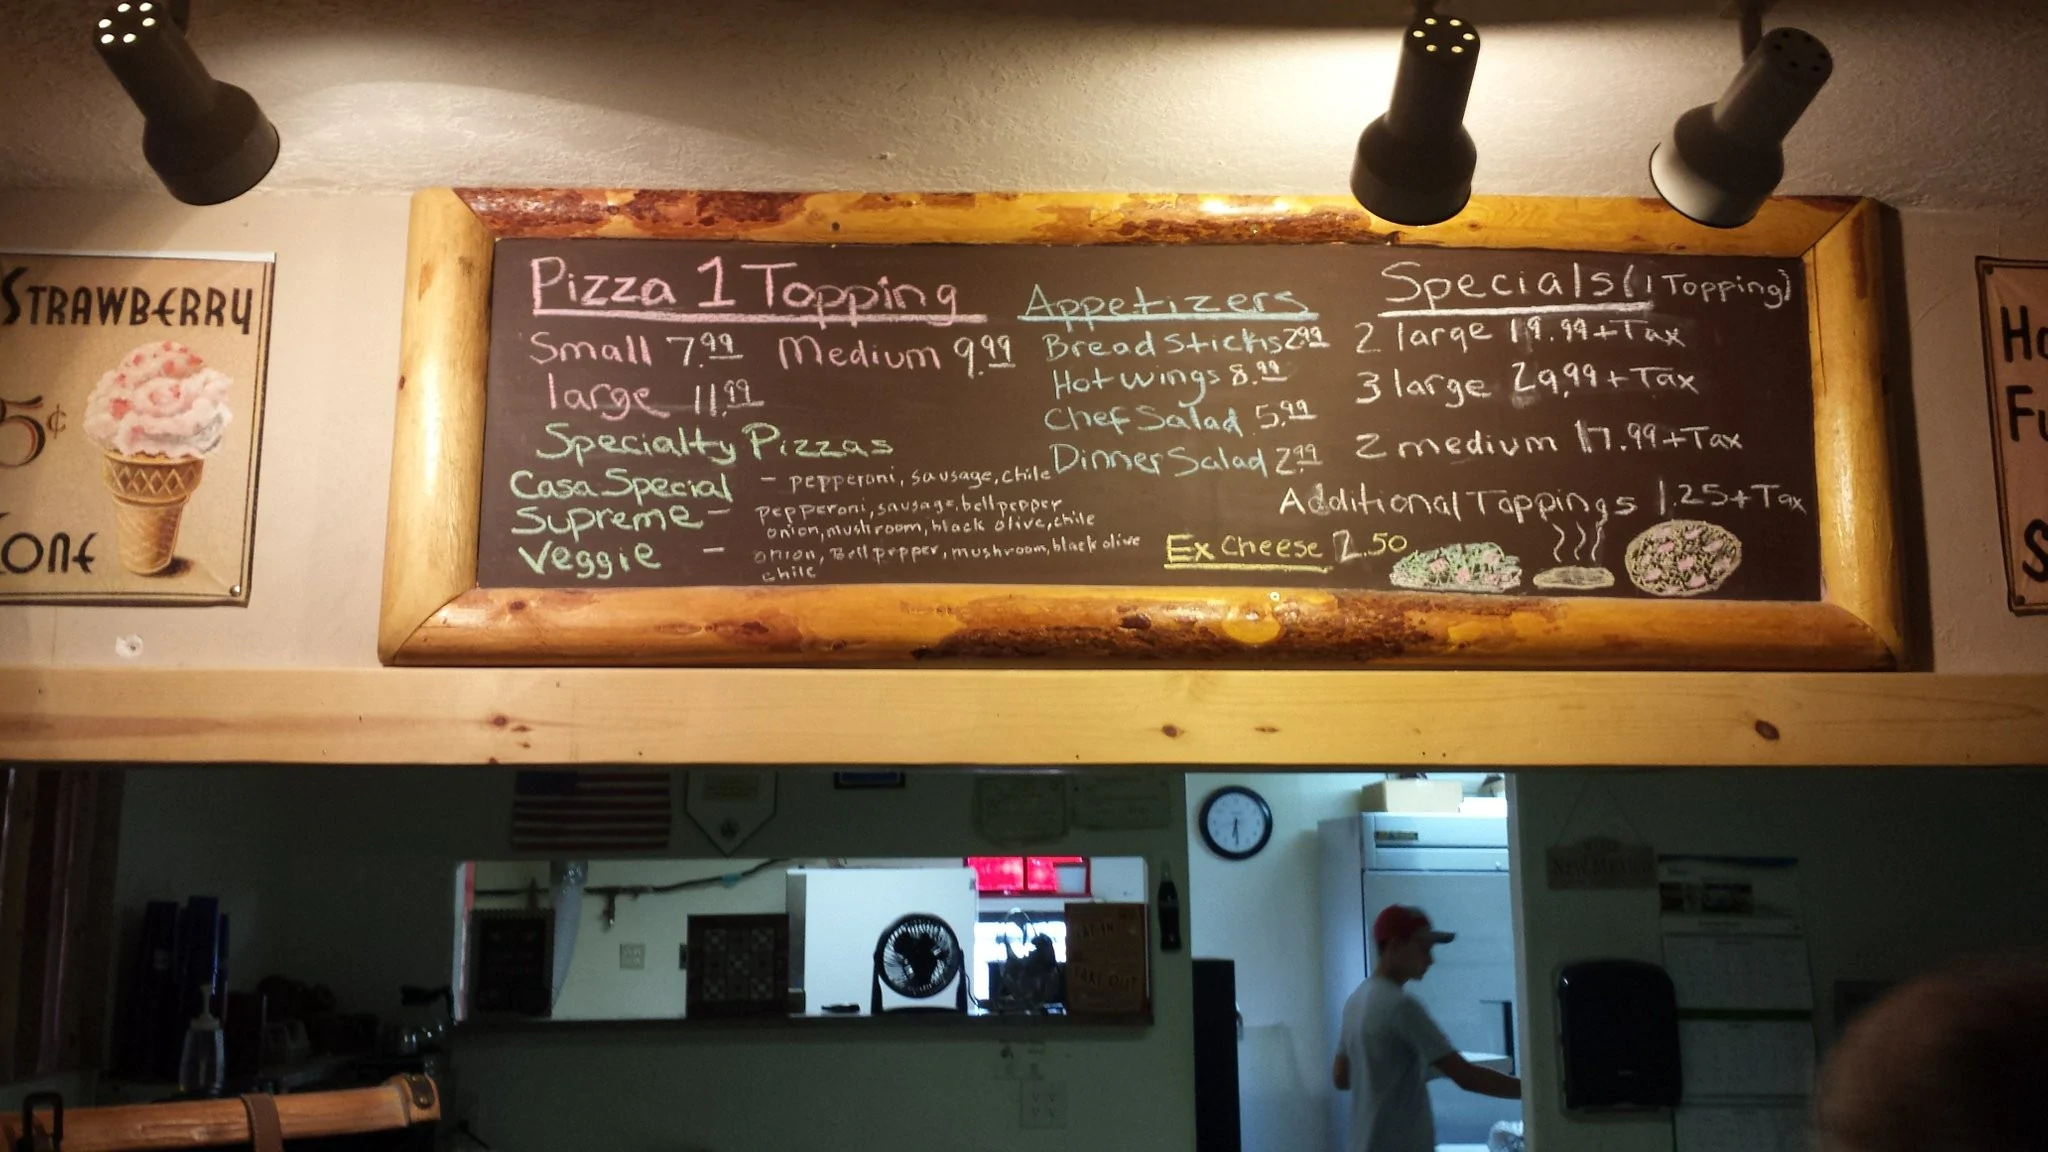 STRAWBERRY
5¢
CONE
Pizza 1 Topping
Small 7.99 Medium 9.99
large 11.99
Specialty Pizzas
Casa Special - pepperoni, sausage, chile
Supreme - pepperoni, sausage, bellpepper
onion, mushroom, black olive, chile
Veggie - onion, Bell pepper, mushroom, black olive
chile
Appetizers
Bread Sticks 2.99
Hot wings 8.99
Chef Salad 5.99
Dinner Salad 2.99
Specials (1 Topping)
2 large 19.99 + Tax
3 large 29.99 + Tax
2 medium 17.99 + Tax
Additional Toppings 1.25 + Tax
Ex Cheese 2.50
Ho
Fu
S
NEW MEXICO
EAT IN
TAKE OUT